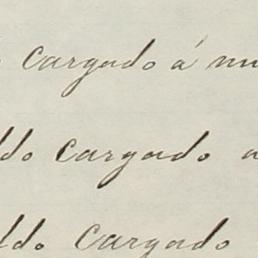 cargado á nu
ldo cargado a
ldo cargado